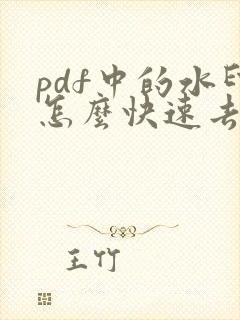 pdf中的水印
怎麼快速去
王竹